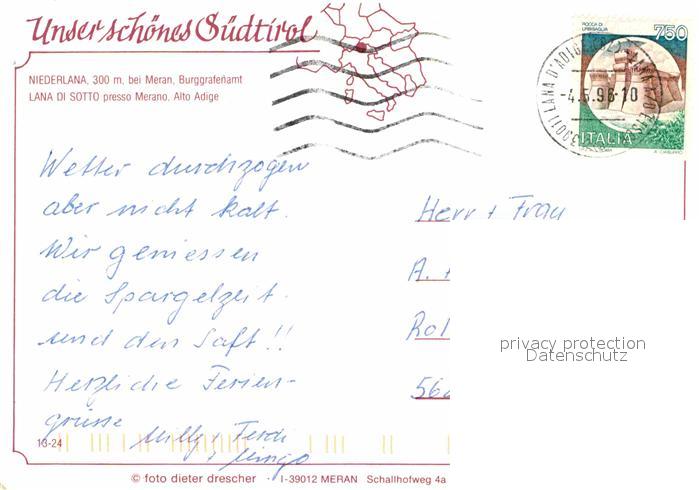 Unser schönes Südtirol
NIEDERLANA, 300 m, bei Meran, Burggrafenamt
LANA DI SOTTO presso Merano, Alto Adige
ROCCA DI
URBISAGLIA
750
39011 LANA D'ADIGE
-4.5.96-10
ITALIA
Wetter durchzogen
aber nicht kalt.
Wir geniessen
die Spargelzeit
und den Saft!!
Herzliche Ferien-
grüsse
Milly + Ferdi
+ Mingo
Herr + Frau
A. +
Rol
562
privacy protection
Datenschutz
13-24
© foto dieter drescher · I-39012 MERAN Schallhofweg 4a